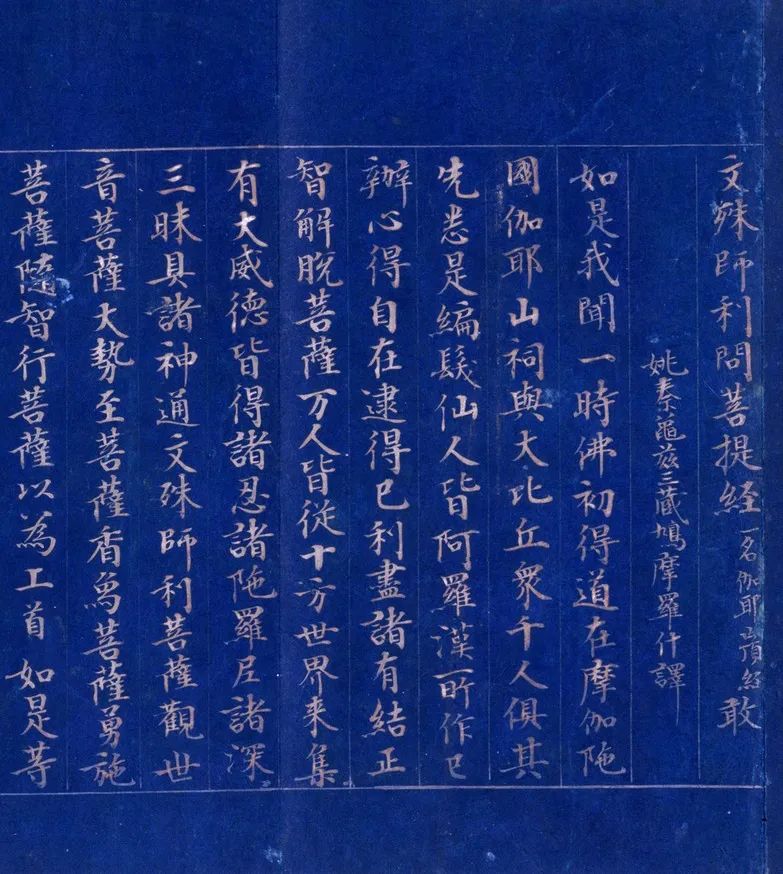 文殊師利問菩提經一名伽耶山頂經 敢
姚秦龜茲三藏鳩摩羅什譯
如是我聞一時佛初得道在摩伽陁
國伽耶山祠與大比丘衆千人俱其
先悉是編髮仙人皆阿羅漢所作已
辦心得自在逮得已利盡諸有結正
智解脫菩薩万人皆從十方世界来集
有大威德皆得諸忍諸陁羅尼諸深
三昧具諸神通文殊師利菩薩觀世
音菩薩大勢至菩薩香烏菩薩勇施
菩薩隨智行菩薩以為上首如是等